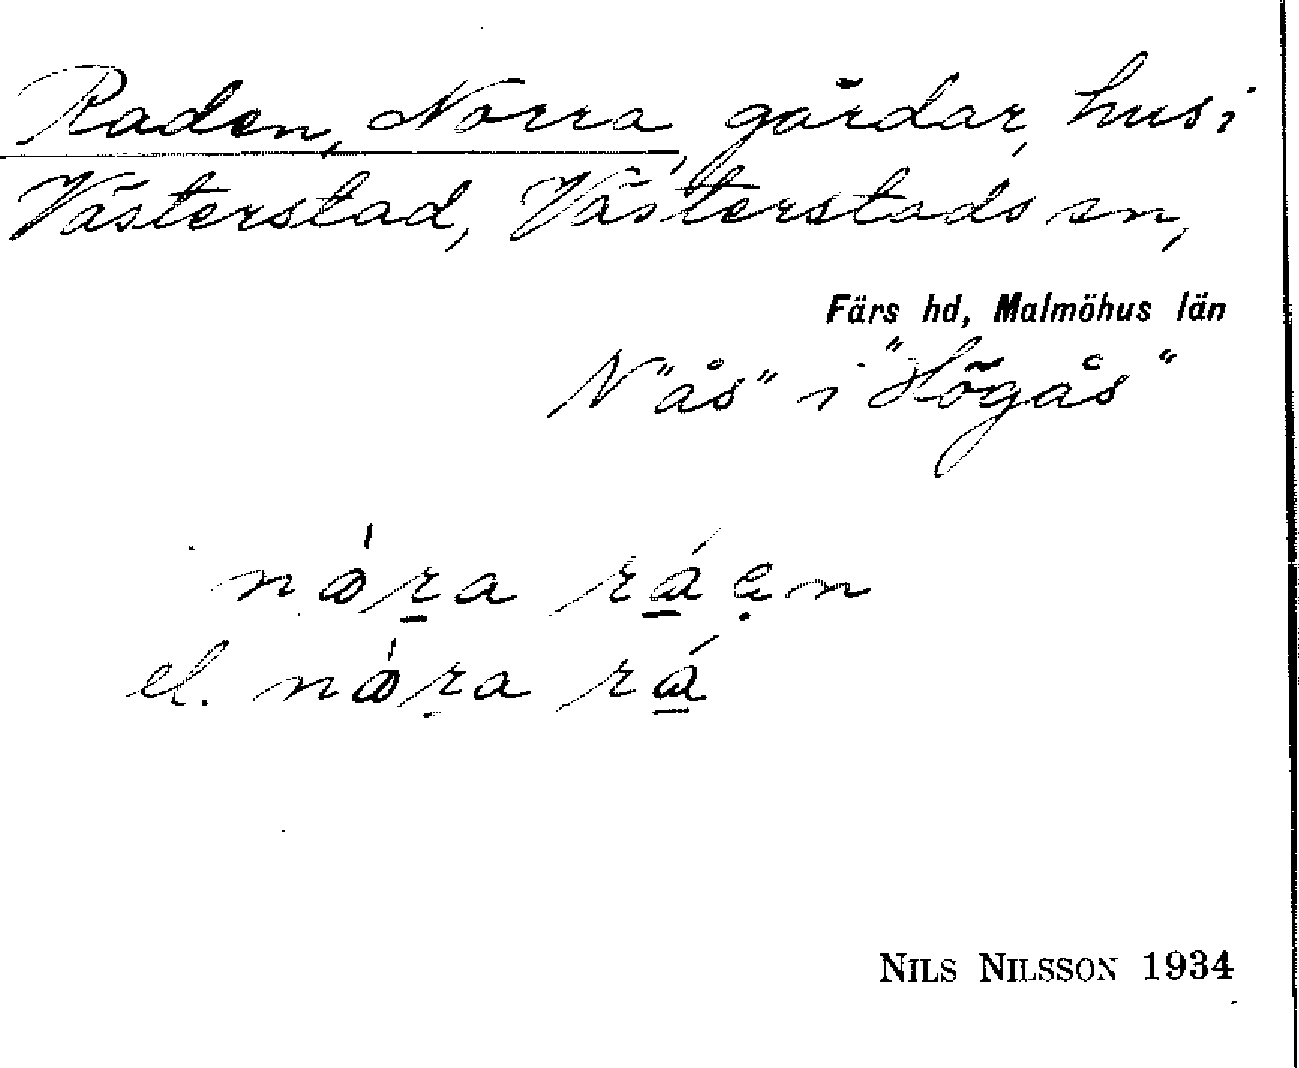 Raden, Norra, gårdar, hus i
Västerstad, Västerstads sn,
Färs hd, Malmöhus län
N "ås" i "Högås"
nǿr̠a rá̠ẹn
el. nǿṛa rá̠
NILS NILSSON 1934